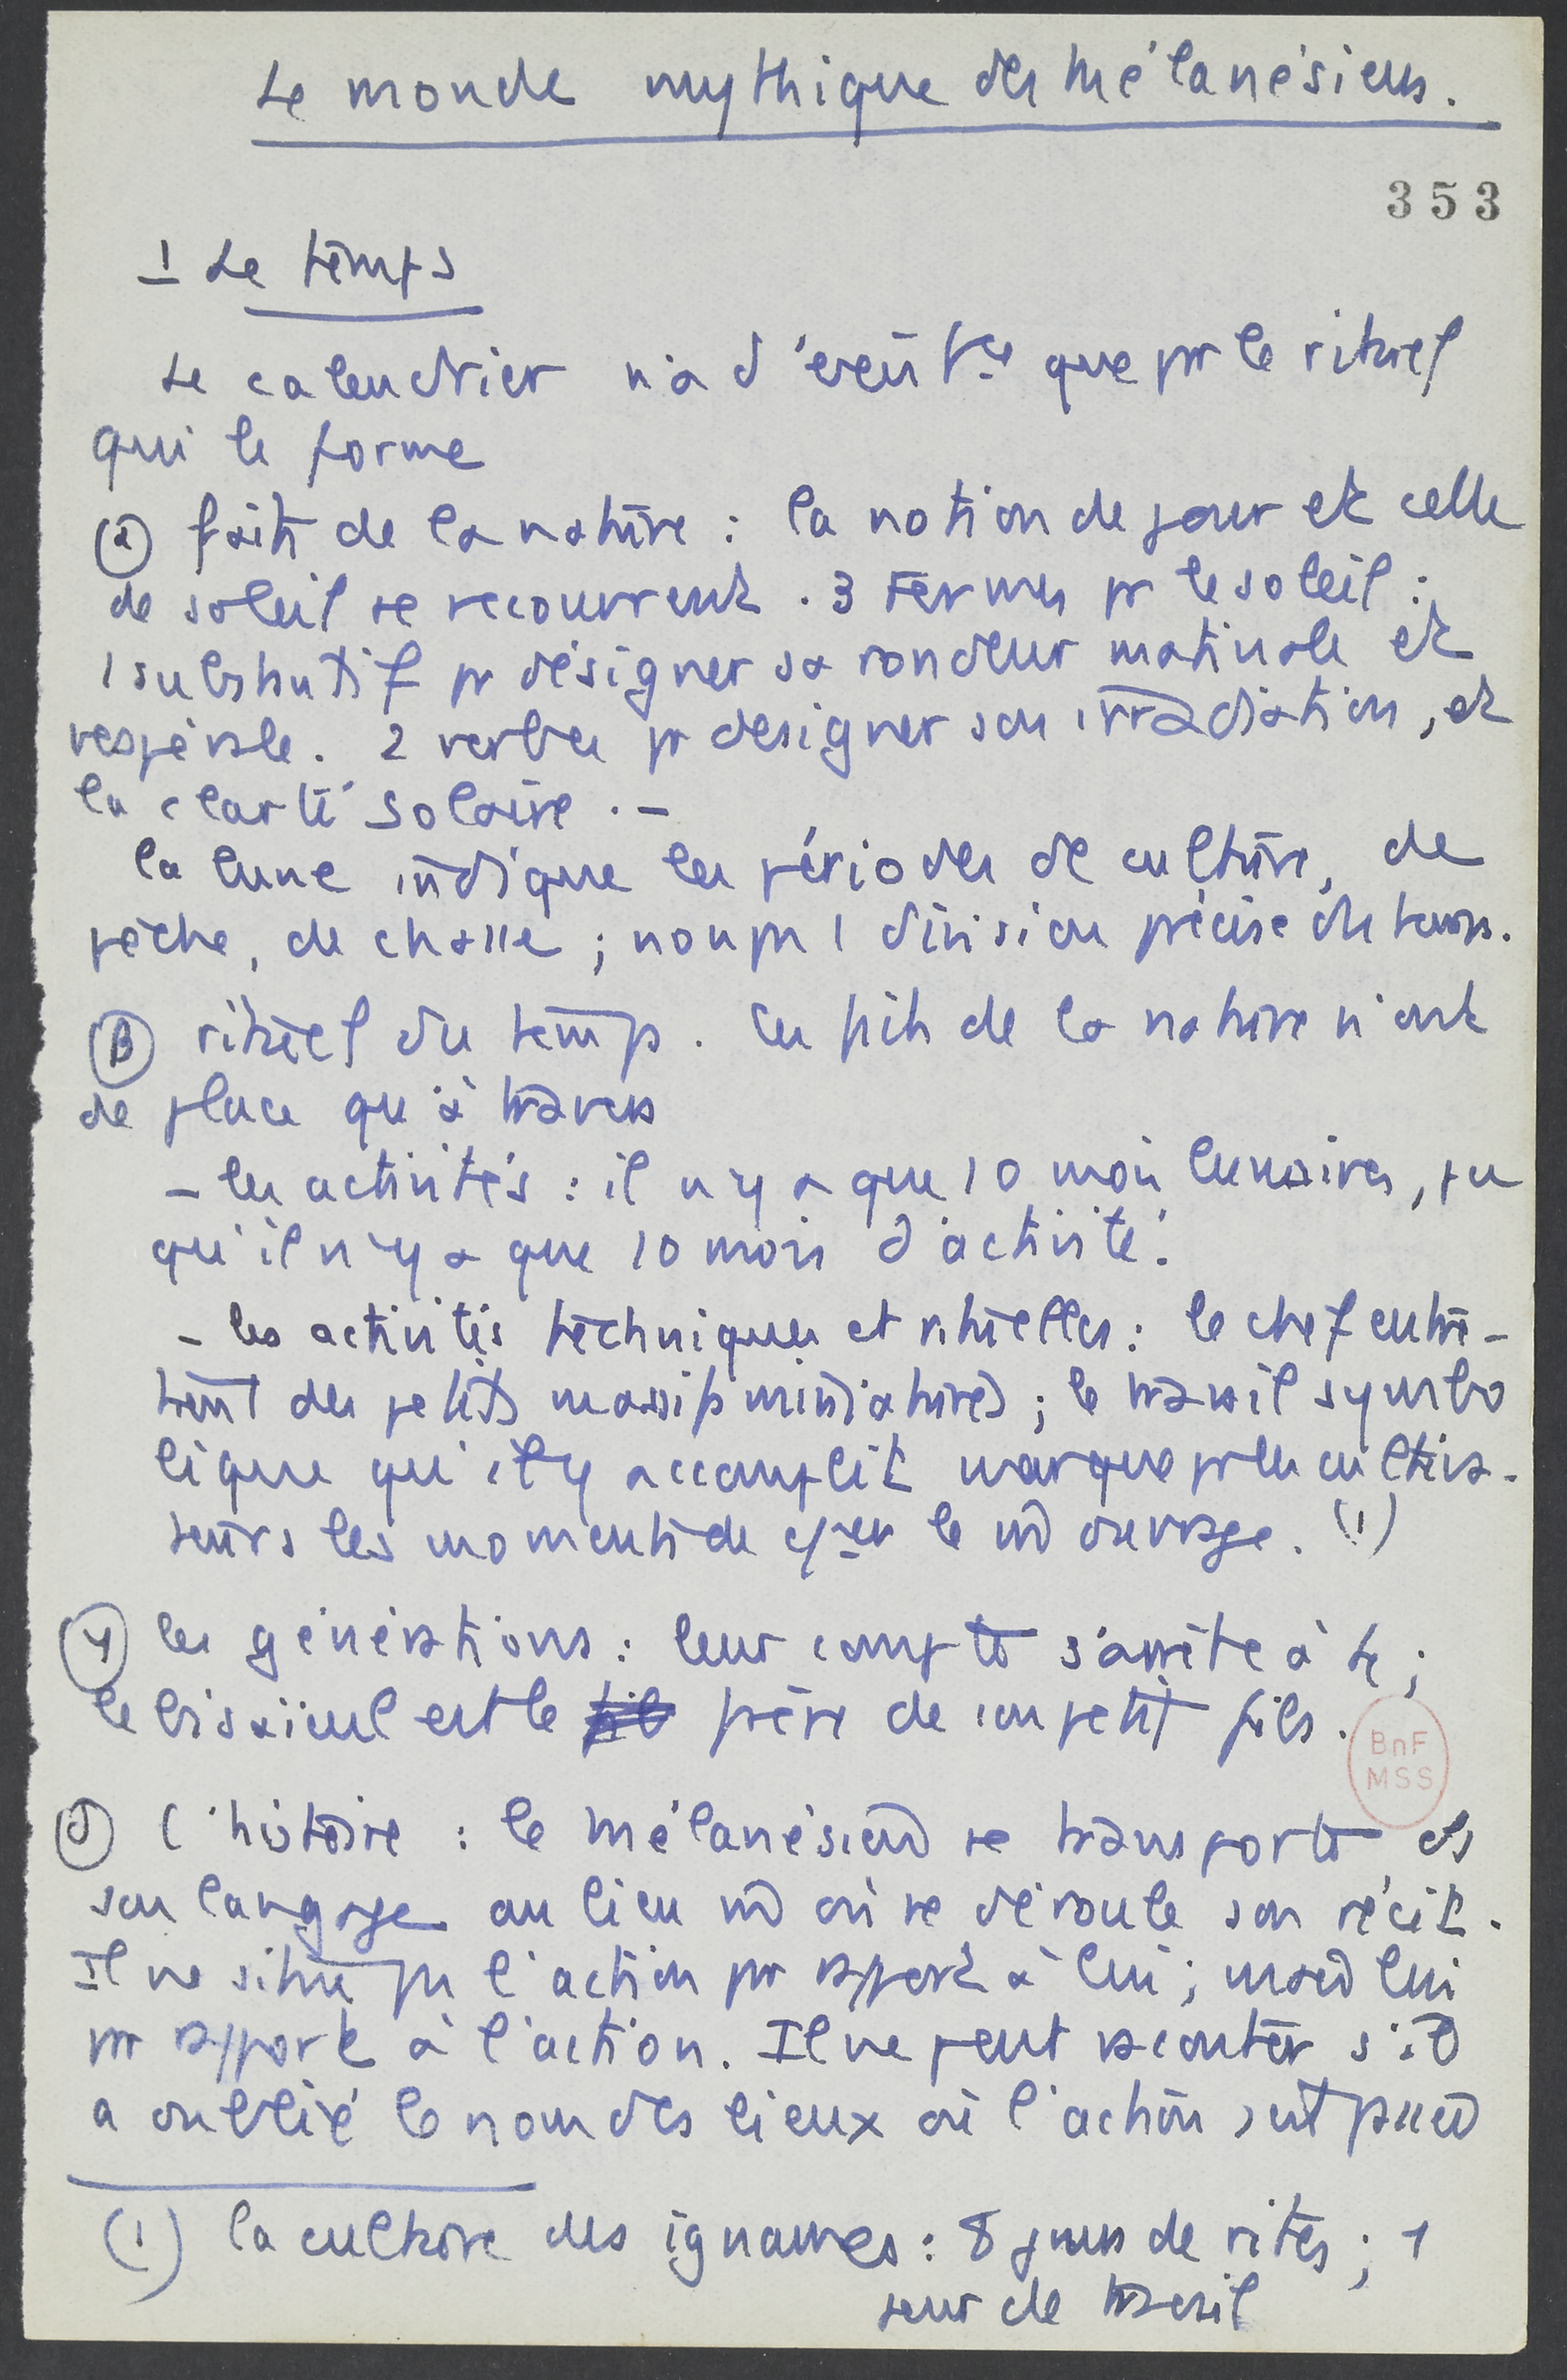 Le monde mythique des Mélanésiens.
353
I Le temps
Le calendrier n'a d'exist^ce que pr le rituel
qui le forme
(α) faits de la nature : la notion de jour et celle
de soleil se recouvrent. 3 termes pr le soleil :
1 substantif pr désigner sa rondeur matinale et
vespérale. 2 verbes pr designer son irradiation, et
la clarté solaire. –
la lune indique les périodes de culture, de
pêche, de chasse ; non pas 1 division précise du temps.
(β) rituel du temps. Les faits de la nature n'ont
de place qu'à travers
– les activités : il n'y a que 10 mois lunaires, pcq
qu'il n'y a que 10 mois d'activité.
– les activités techniques et rituelles : le chef entre-
tient des petits massifs miniatures ; le travail symbo
lique qu'il y accomplit marque pr les cultiva-
teurs les moments de c/cer le m̂ ouvrage. (1)
(γ) les générations : leur compte s'arrête à 4 ;
le bisaïeul est le fils frère de son petit fils.
BnF
MSS
(δ) l'histoire : le mélanésien se transporte ds
son langage au lieu m̂ où se déroule son récit.
Il ne situe pas l'action pr rapport à lui ; mais lui
pr rapport à l'action. Il ne peut raconter s'il
a oublié le nom des lieux où l'action s'est passée
(1) la culture des ignames : 8 jours de rites ; 1
seul de travail